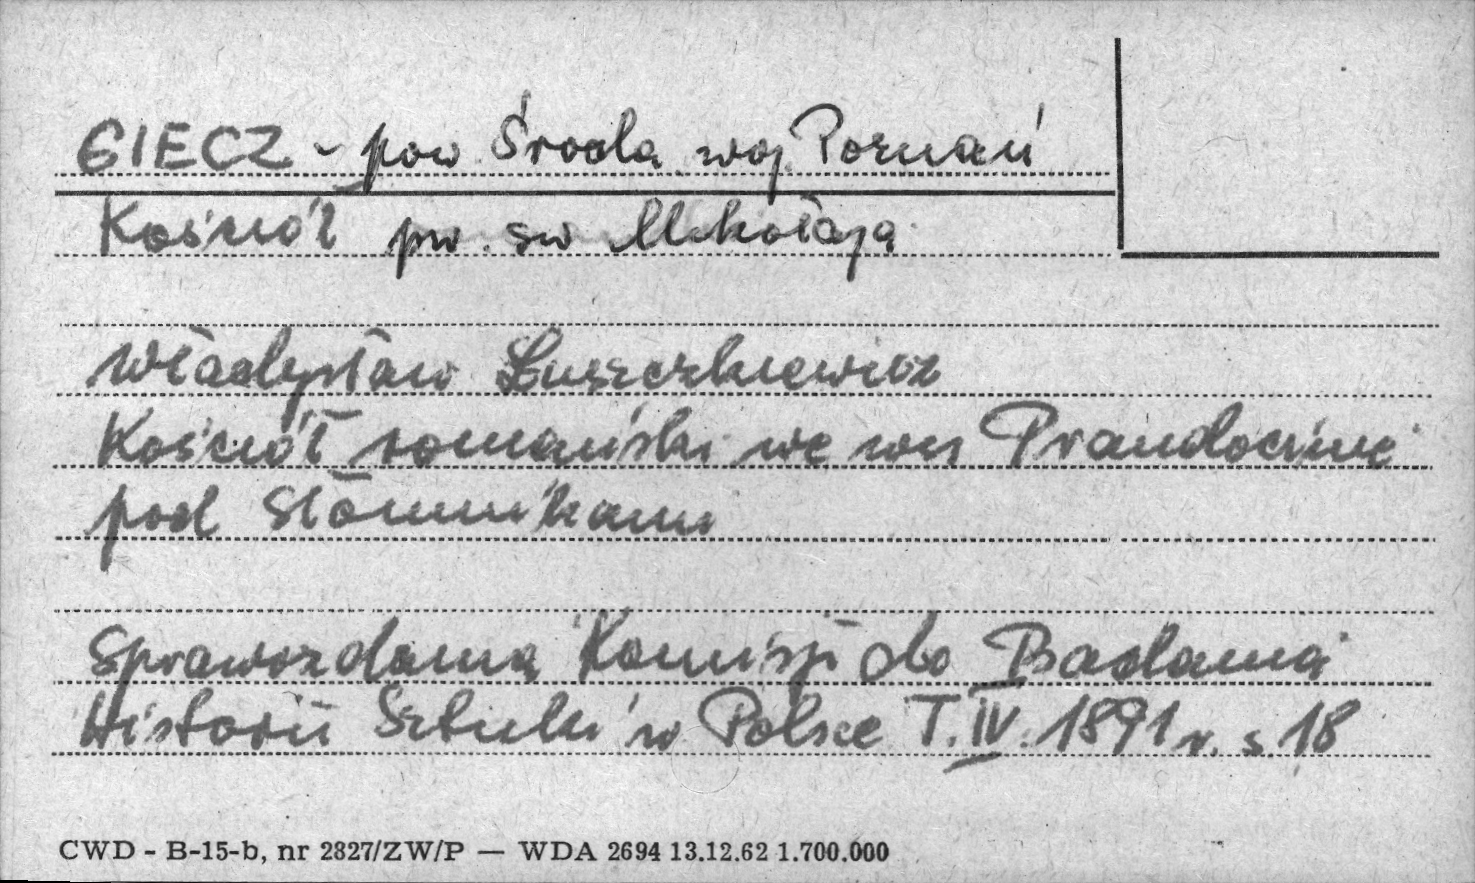 GIECZ - pow Środa woj. Poznań
Kościół pw. św Mikołaja
Władysław Łuszczkiewicz
Kościół romański we wsi Prandocinie
pod Słomnikami
Sprawozdania Komisji do Badania
Historii Sztuki w Polsce T. IV. 1891 r. s 18
CWD - B-15-b, nr 2827/ZW/P — WDA 2694 13.12.62 1.700.000